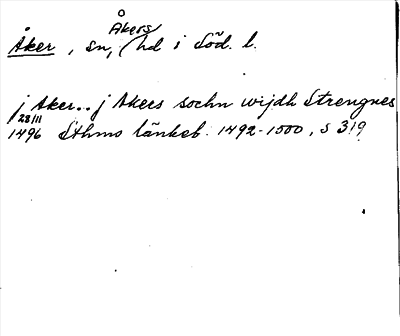 Åker, sn, Åkers hd i Söd. l.
j Aker.. j Akers sochn wijdh Strengnes
28/11
1496 Sthms tänkeb. 1492-1500, s 319